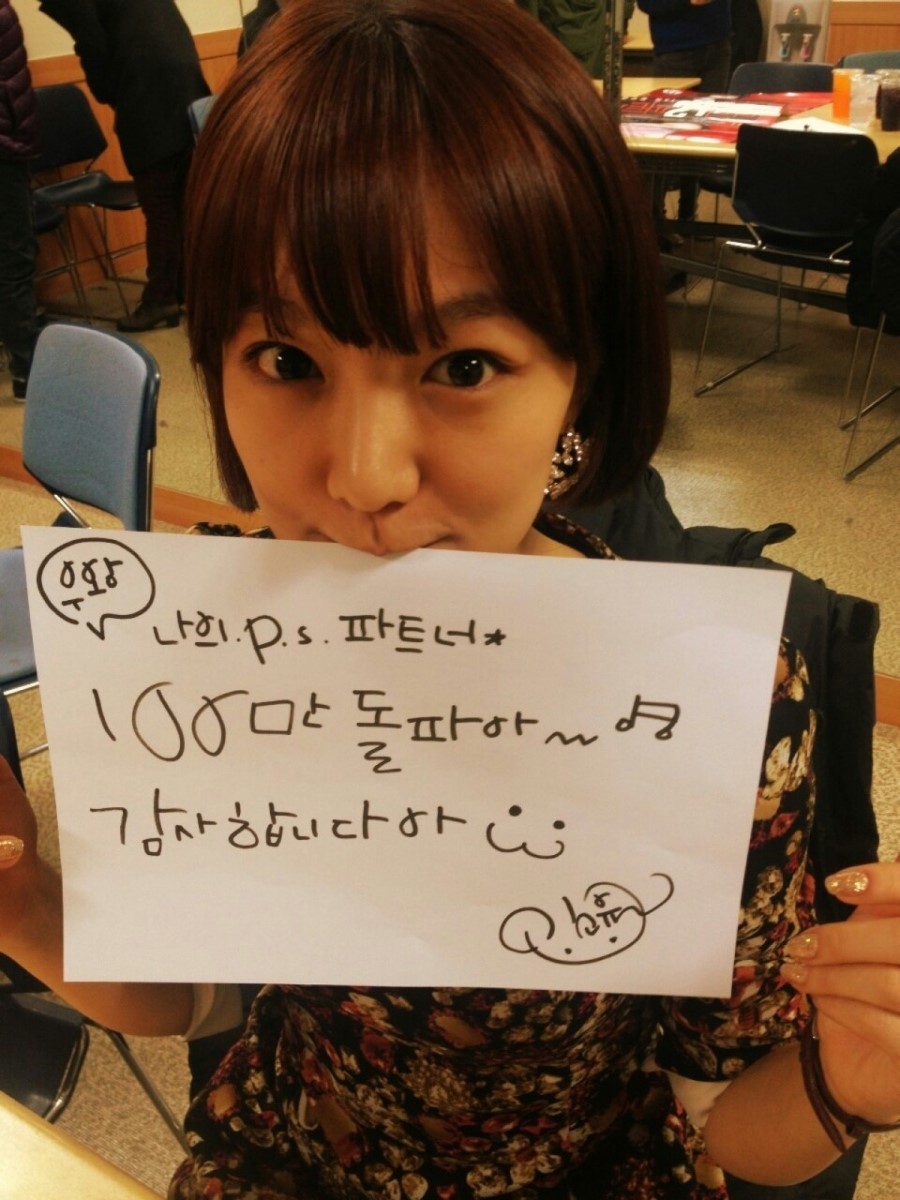 우왕
나의.P.s.파트너*
100만 돌파아~영
감사합니다아